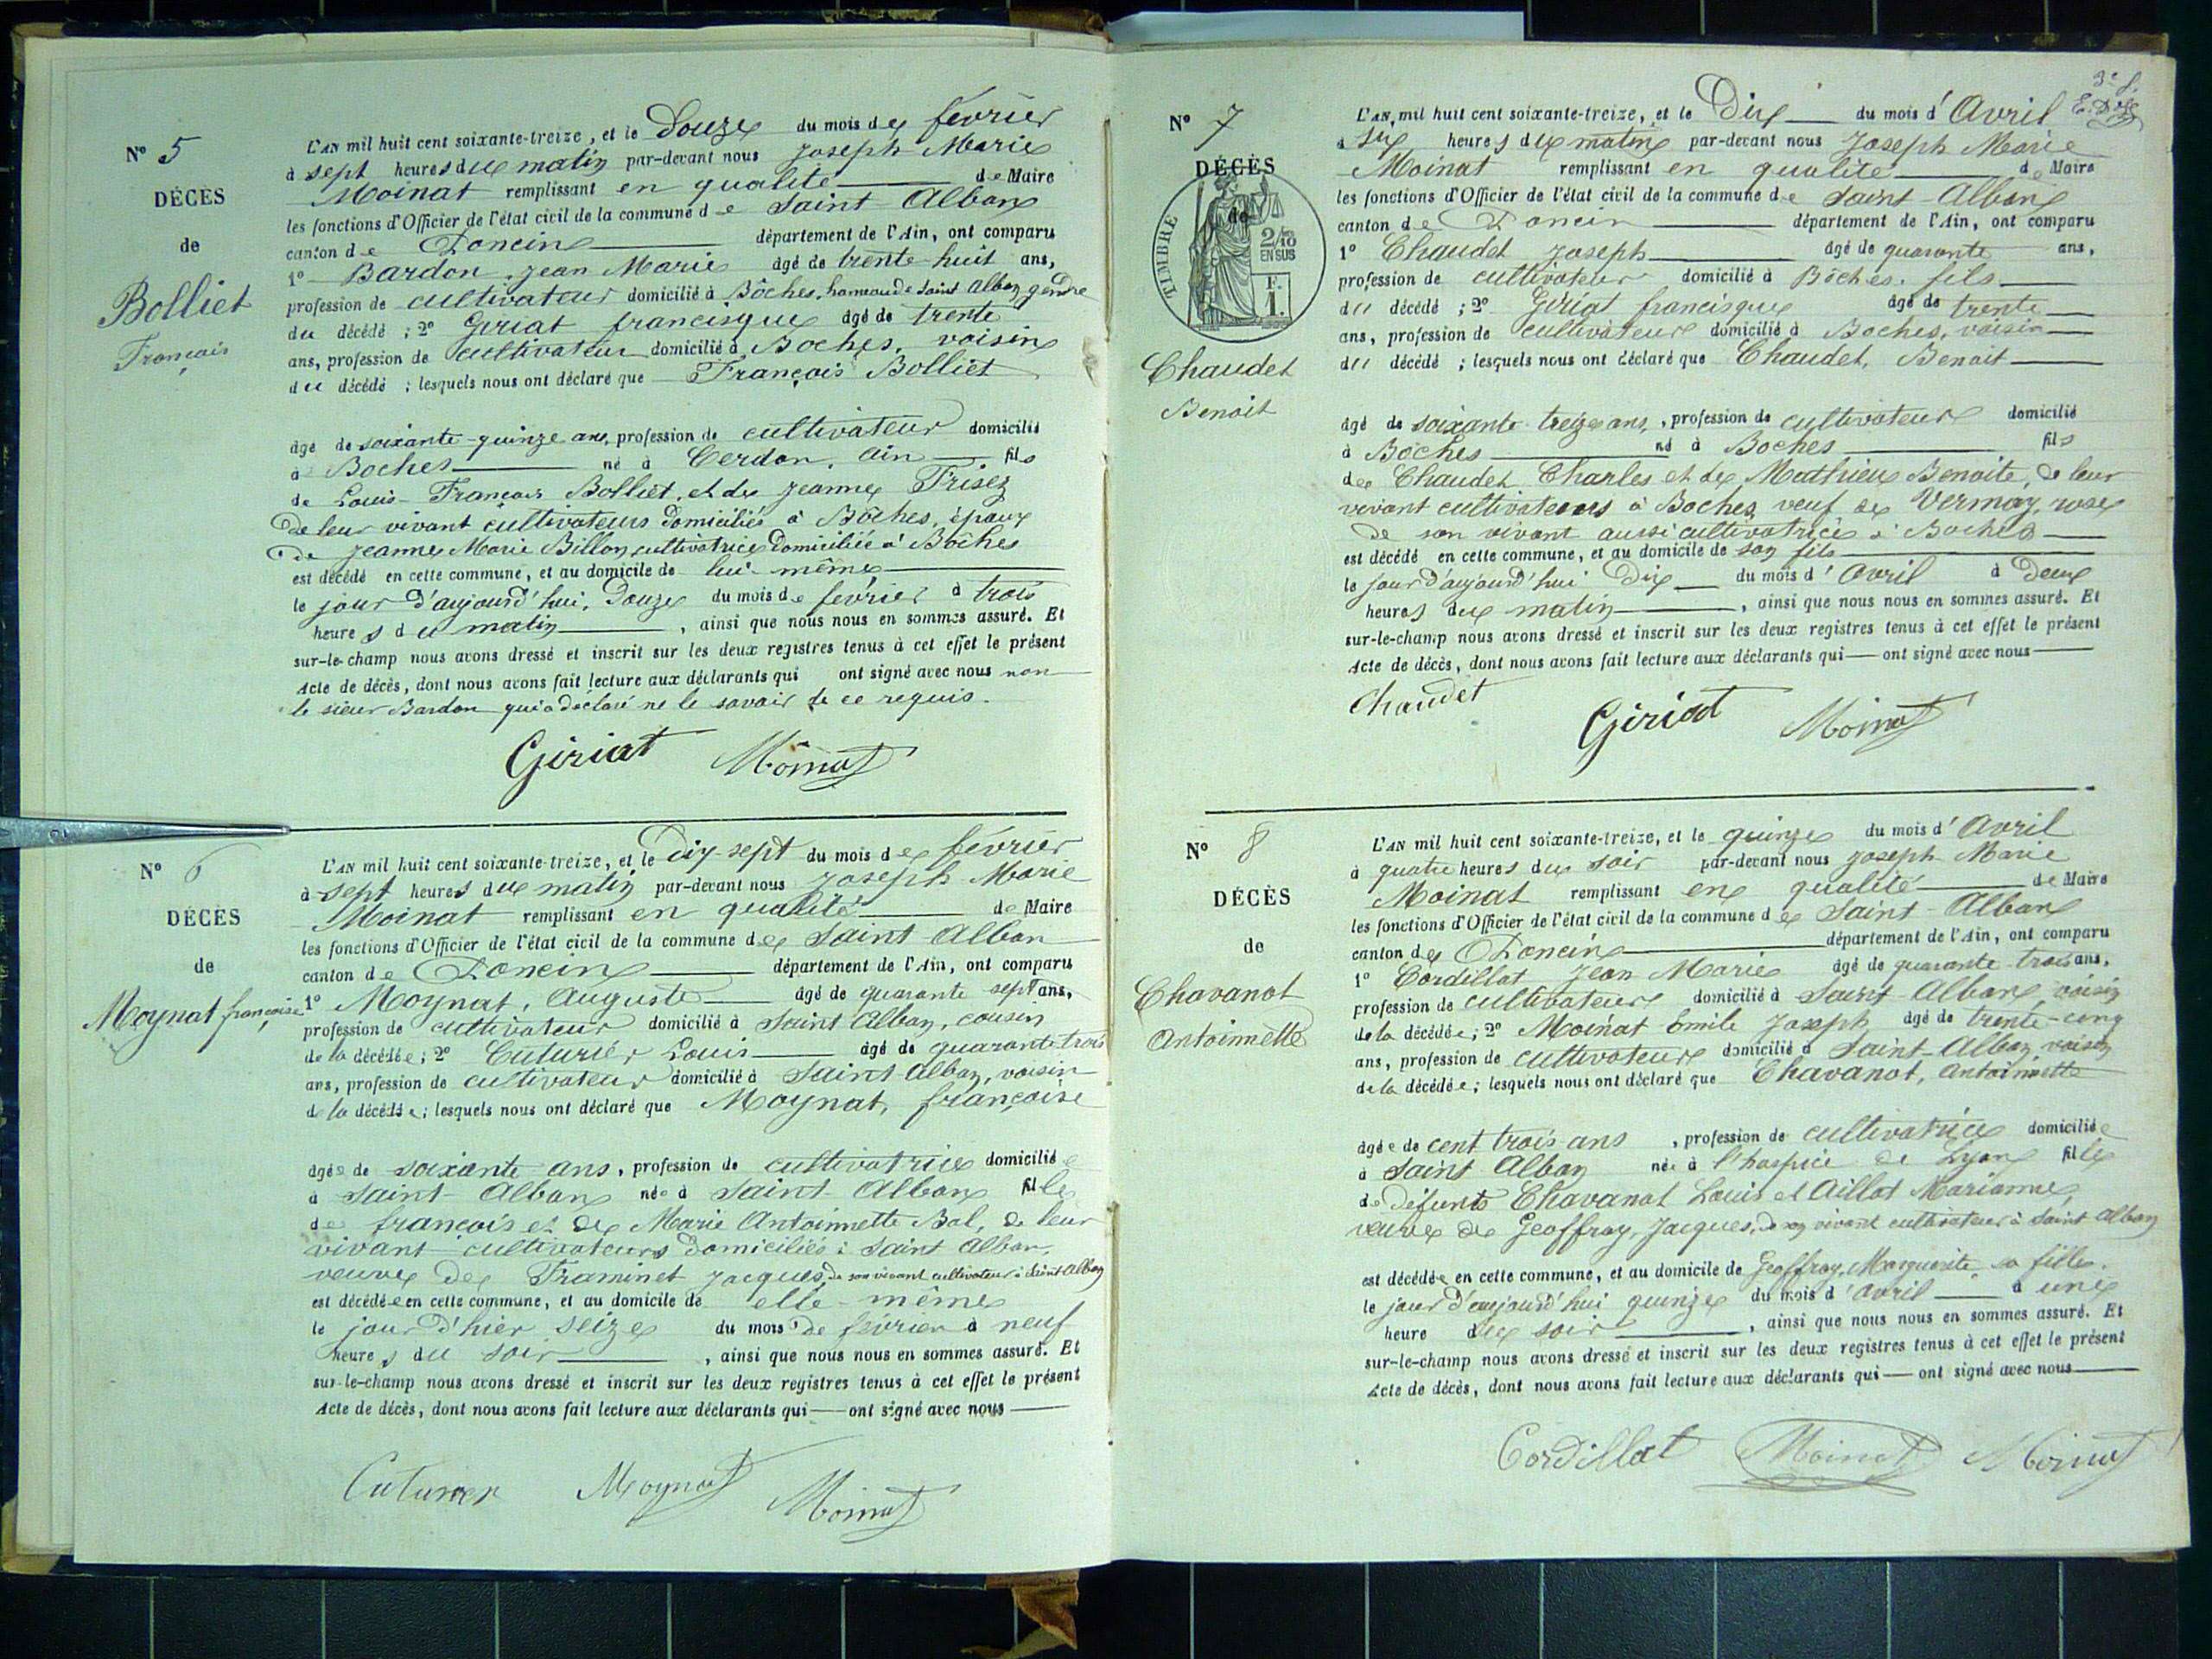 N° 5
DÉCÈS
de
Bolliet
François
L'AN mil huit cent soixante-treize, et le Douze du mois de février
à sept heures du matin par-devant nous Joseph Marie
Moinat remplissant en qualité de Maire
les fonctions d'Officier de l'état civil de la commune de Saint-Alban
canton de Poncin département de l'Ain, ont comparu
1° Bardon, Jean Marie âgé de trente-huit ans,
profession de cultivateur domicilié à Bôches, hameau de Saint Alban, gendre
du décédé ; 2° Giriat francisque âgé de trente
ans, profession de cultivateur domicilié à Boches, voisin
du décédé ; lesquels nous ont déclaré que François Bolliet
âgé de soixante-quinze ans, profession de cultivateur domicilié
à Boches né à Cerdon, Ain fils
de Louis-François Bolliet, et de Jeanne
De leur vivant cultivateurs domiciliés à Bôches, époux
De Jeanne Marie Billon cultivatrice Domiciliée à Bôches
est décédé en cette commune, et au domicile de lui-même
le jour d'aujourd'hui, Douze du mois de février à trois
heures du matin, ainsi que nous nous en sommes assuré. Et
sur-le-champ nous avons dressé et inscrit sur les deux registres tenus à cet effet le présent
Acte de décès, dont nous avons fait lecture aux déclarants qui ont signé avec nous non
le sieur Bardon qui a déclaré ne le savoir de ce requis.
Giriat Moinat
N° 6
DÉCÈS
de
Moynat françoise
L'AN mil huit cent soixante-treize, et le dix-sept du mois de février
à sept heures du matin par-devant nous Joseph Marie
Moinat remplissant en qualité de Maire
les fonctions d'Officier de l'état civil de la commune de Saint Alban
canton de Poncin département de l'Ain, ont comparu
1° Moynat, Auguste âgé de quarante sept ans,
profession de cultivateur domicilié à Saint Alban, cousin
de la décédée ; 2° Cuturier Louis âgé de quarante-trois
ans, profession de cultivateur domicilié à Saint Alban, voisin
de la décédée ; lesquels nous ont déclaré que Moynat, françoise
âgée de soixante ans, profession de cultivatrice domiciliée
à Saint-Alban née à Saint-Alban fille
de françois et de Marie Antoinette Bal, de leur
vivant cultivateurs domiciliés à Saint Alban,
veuve de Traminet Jacques, de son vivant cultivateur à Saint Alban
est décédée en cette commune, et au domicile de elle-même
le jour d'hier seize du mois de février à neuf
heures du soir, ainsi que nous nous en sommes assuré. Et
sur-le-champ nous avons dressé et inscrit sur les deux registres tenus à cet effet le présent
Acte de décès, dont nous avons fait lecture aux déclarants qui ont signé avec nous
Cuturier Moynat Moinat
3e f.
N° 7
DÉCÈS
de
TIMBRE
2/10 EN SUS
F. 1.
Chaudet
Benoit
L'AN mil huit cent soixante-treize, et le Dix du mois d'Avril
à six heures du matin par-devant nous Joseph Marie
Moinat remplissant en qualité de Maire
les fonctions d'Officier de l'état civil de la commune de Saint-Alban
canton de Poncin département de l'Ain, ont comparu
1° Chaudet Joseph âgé de quarante ans,
profession de cultivateur domicilié à Bôches, fils
du décédé ; 2° Giriat francisque âgé de trente
ans, profession de cultivateur domicilié à Boches, voisin
du décédé ; lesquels nous ont déclaré que Chaudet, Benoit
âgé de soixante treize ans, profession de cultivateur domicilié
à Bôches né à Boches fils
de Chaudet Charles et de Mathieu Benoite, de leur
vivant cultivateurs à Boches veuf de Vermay, rose
de son vivant aussi cultivatrice à Boches
est décédé en cette commune, et au domicile de son fils
le jour d'aujourd'hui Dix du mois d'Avril à Deux
heures du matin, ainsi que nous nous en sommes assuré. Et
sur-le-champ nous avons dressé et inscrit sur les deux registres tenus à cet effet le présent
Acte de décès, dont nous avons fait lecture aux déclarants qui ont signé avec nous
Chaudet
Giriat Moinat
N° 8
DÉCÈS
de
Chavanot
Antoinette
L'AN mil huit cent soixante-treize, et le quinze du mois d'Avril
à quatre heures du soir par-devant nous Joseph Marie
Moinat remplissant en qualité de Maire
les fonctions d'Officier de l'état civil de la commune de Saint-Alban
canton de Poncin département de l'Ain, ont comparu
1° Cordillat Jean Marie âgé de quarante-trois ans,
profession de cultivateur domicilié à Saint-Alban, voisin
de la décédée ; 2° Moinat Emile Joseph âgé de trente-cinq
ans, profession de cultivateur domicilié à Saint-Alban, voisin
de la décédée ; lesquels nous ont déclaré que Chavanot, Antoinette
âgée de cent trois ans, profession de cultivatrice domiciliée
à Saint Alban née à l'hospice de Lyon fille
de Défunts Chavanot Louis et Aillot Marianne,
veuve de Geoffray, Jacques, de son vivant cultivateur à Saint Alban
est décédée en cette commune, et au domicile de Geoffray, Marguerite, sa fille.
le jour d'aujourd'hui quinze du mois d'avril à une
heure du soir, ainsi que nous nous en sommes assuré. Et
sur-le-champ nous avons dressé et inscrit sur les deux registres tenus à cet effet le présent
Acte de décès, dont nous avons fait lecture aux déclarants qui ont signé avec nous
Cordillat Moinat Moinat